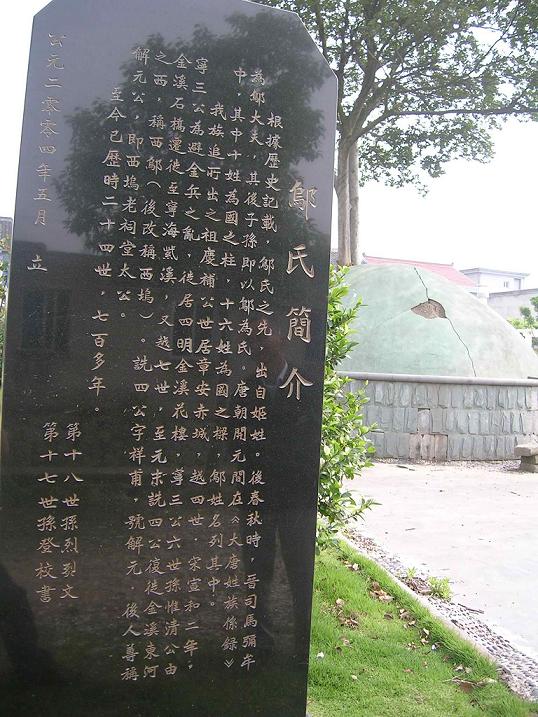 鄔氏簡介
根據歷史記載，鄔氏之先，出自姬姓。後春秋時，晉司馬彌牟
為鄔大夫，其後子孫即以鄔為氏。唐朝開元間在《大唐姓族係錄》
中，其中十姓為國之柱，十六姓為國之樑，鄔姓名列其中。
我族追所出之祖慶補公世居章安赤城，越四世，宋宣和二年，
寧三公為避金兵之亂，徙居四明金溪花樓，尊三公六世孫惟清公由
金溪石橋遷徙至寧海紫溪，又越七世，至元末詵四公復徙金溪東河
之西，稱西鄔（後改稱西塢）。詵四公字祥甫，號解元，後人尊稱
解元公，即西塢老祠堂太公。
至今已歷時二十四世，七百多年。
第十八世孫烈烈文
第十七世孫登校書
公元二零零四年五月 立